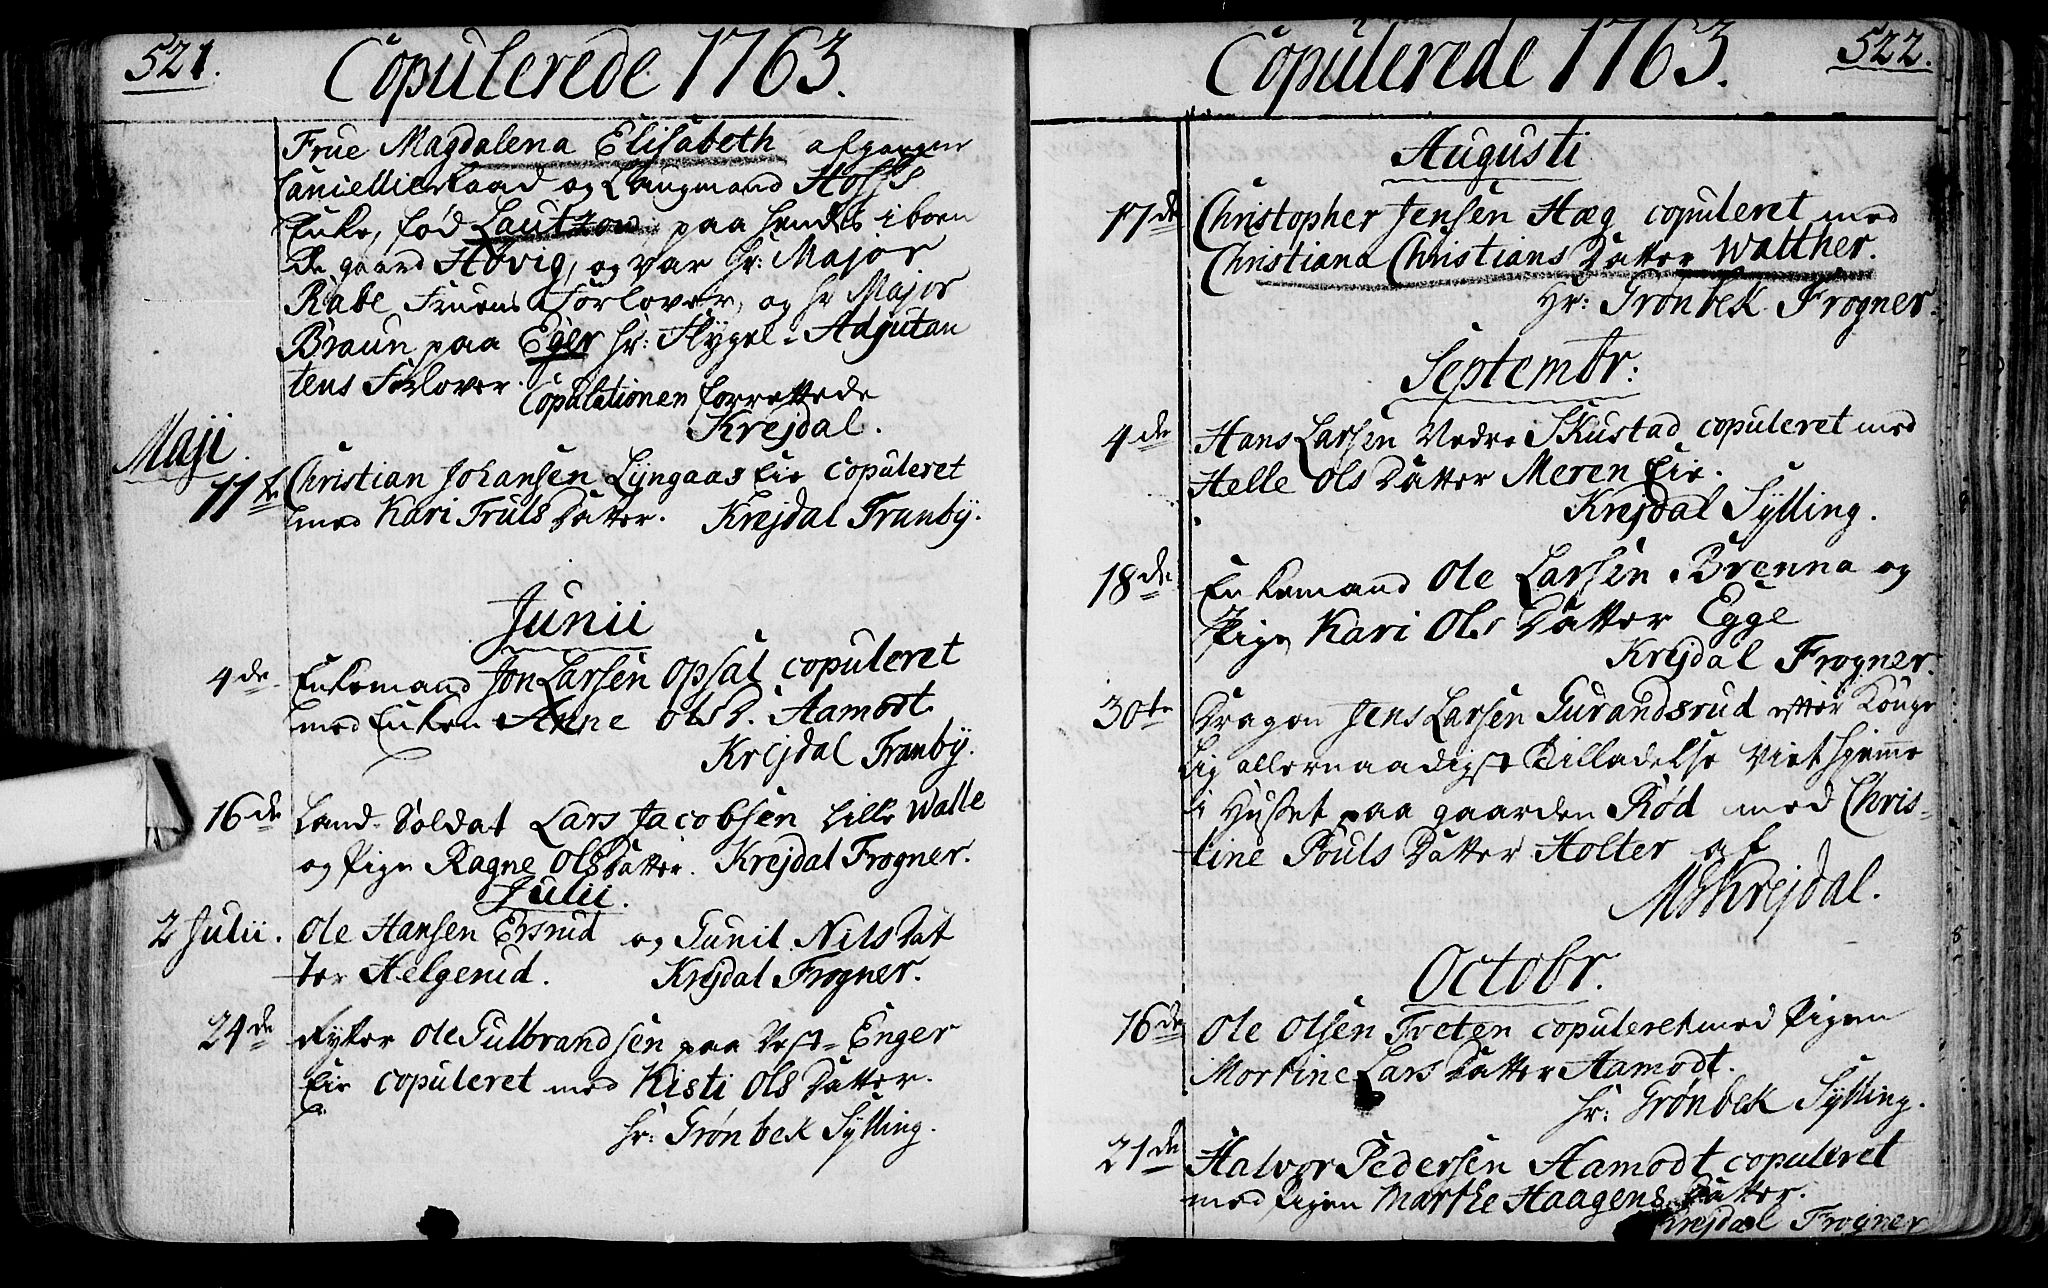 521.
Copulerede 1763.
Frue Magdalena Elisabeth afgangne
Cancellieraad og Laugmand Hoffs
Enke, fød Lautzow, paa hendes iboen
de gaard Høvig, og var Hr: Major
Rabe Fruens Forlover, og Hr Major
Braun paa Eger Hr: Flygel-Adjutan
tens Forlover.
Copulationen forrettede
Krejdal.
Maji.
11te Christian Johansen Lyngaas Eie copuleret
med Kari Truls Datter. Krejdal Tranby.
Junii
4de Enkemand Jon Larsen Opsal copuleret
med Enken Anne Ols D. Aamodt
Krejdal Tranby.
16de Land-Soldat Lars Jacobsen Lille Walle
og Pige Ragne Ols Datter. Krejdal Frogner.
Julii.
2 Julii. Ole Hansen Ersrud og Gunil Nils Dat
ter Helgerud. Krejdal Frogner.
24de Rytter Ole Gulbrandsen paa Vest-Enger
Eie copuleret med Kisti Ols Datter.
Hr: Grønbek Sylling.
522.
Copulerede 1763.
Augusti
17de Christopher Jensen Hæg copuleret med
Christiana Christians Datter Walther.
Hr: Grønbek Frogner.
Septembr:
4de Hans Larsen Nedre Skustad copuleret med
Helle Ols Datter Meren Eie.
Krejdal Sylling.
18de Enkemand Ole Larsen Brenna og
Pige Kari Ols Datter Egge
Krejdal Frogner.
30te Dragon Jens Larsen Gurandsrud efter Konge
lig allernaadigst Tilladelse Viet hjemme
i Huset paa gaarden Rød med Chris-
tine Pouls Datter Holter af
M Krejdal.
Octobr.
16de Ole Olsen Treten copuleret med Pigen
Mortine Lars Datter Aamodt.
Hr: Grønbek Sylling.
21de Halvor Pedersen Aamodt copuleret
med Pigen Marthe Haagens Datter.
Krejdal Frogner